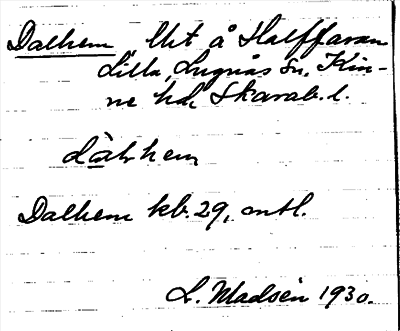 Dalhem, Utt å Halffaran
Lilla, Lugnås sn, Kin-
ne hd, Skarab. l.
dàlhem
Dalhem kb. 29, antl.
L. Madsén 1930.